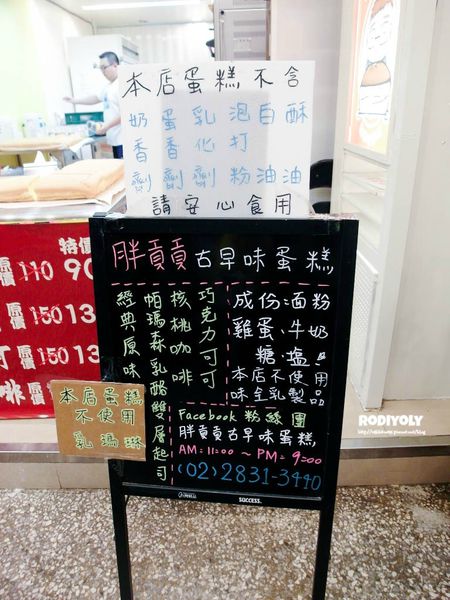 本店蛋糕不含
奶 蛋 乳 泡 白 酥
香 香 化 打
劑 劑 劑 粉 油 油
請安心食用
胖貢貢古早味蛋糕
巧克力可可
核桃咖啡
帕瑪森乳酪雙層起司
經典原味
成份:麵粉
雞蛋、牛奶
糖、塩。
本店不使用
味全乳製品
Facebook 粉絲團
胖貢貢古早味蛋糕
AM=11=00 ~ PM=9=00
(02)2831-3440
SUCCESS.
本店蛋糕
不使用
乳瑪琳
特價
原價110 90
原價150 13
原價150 13
原價
RODIYOLY